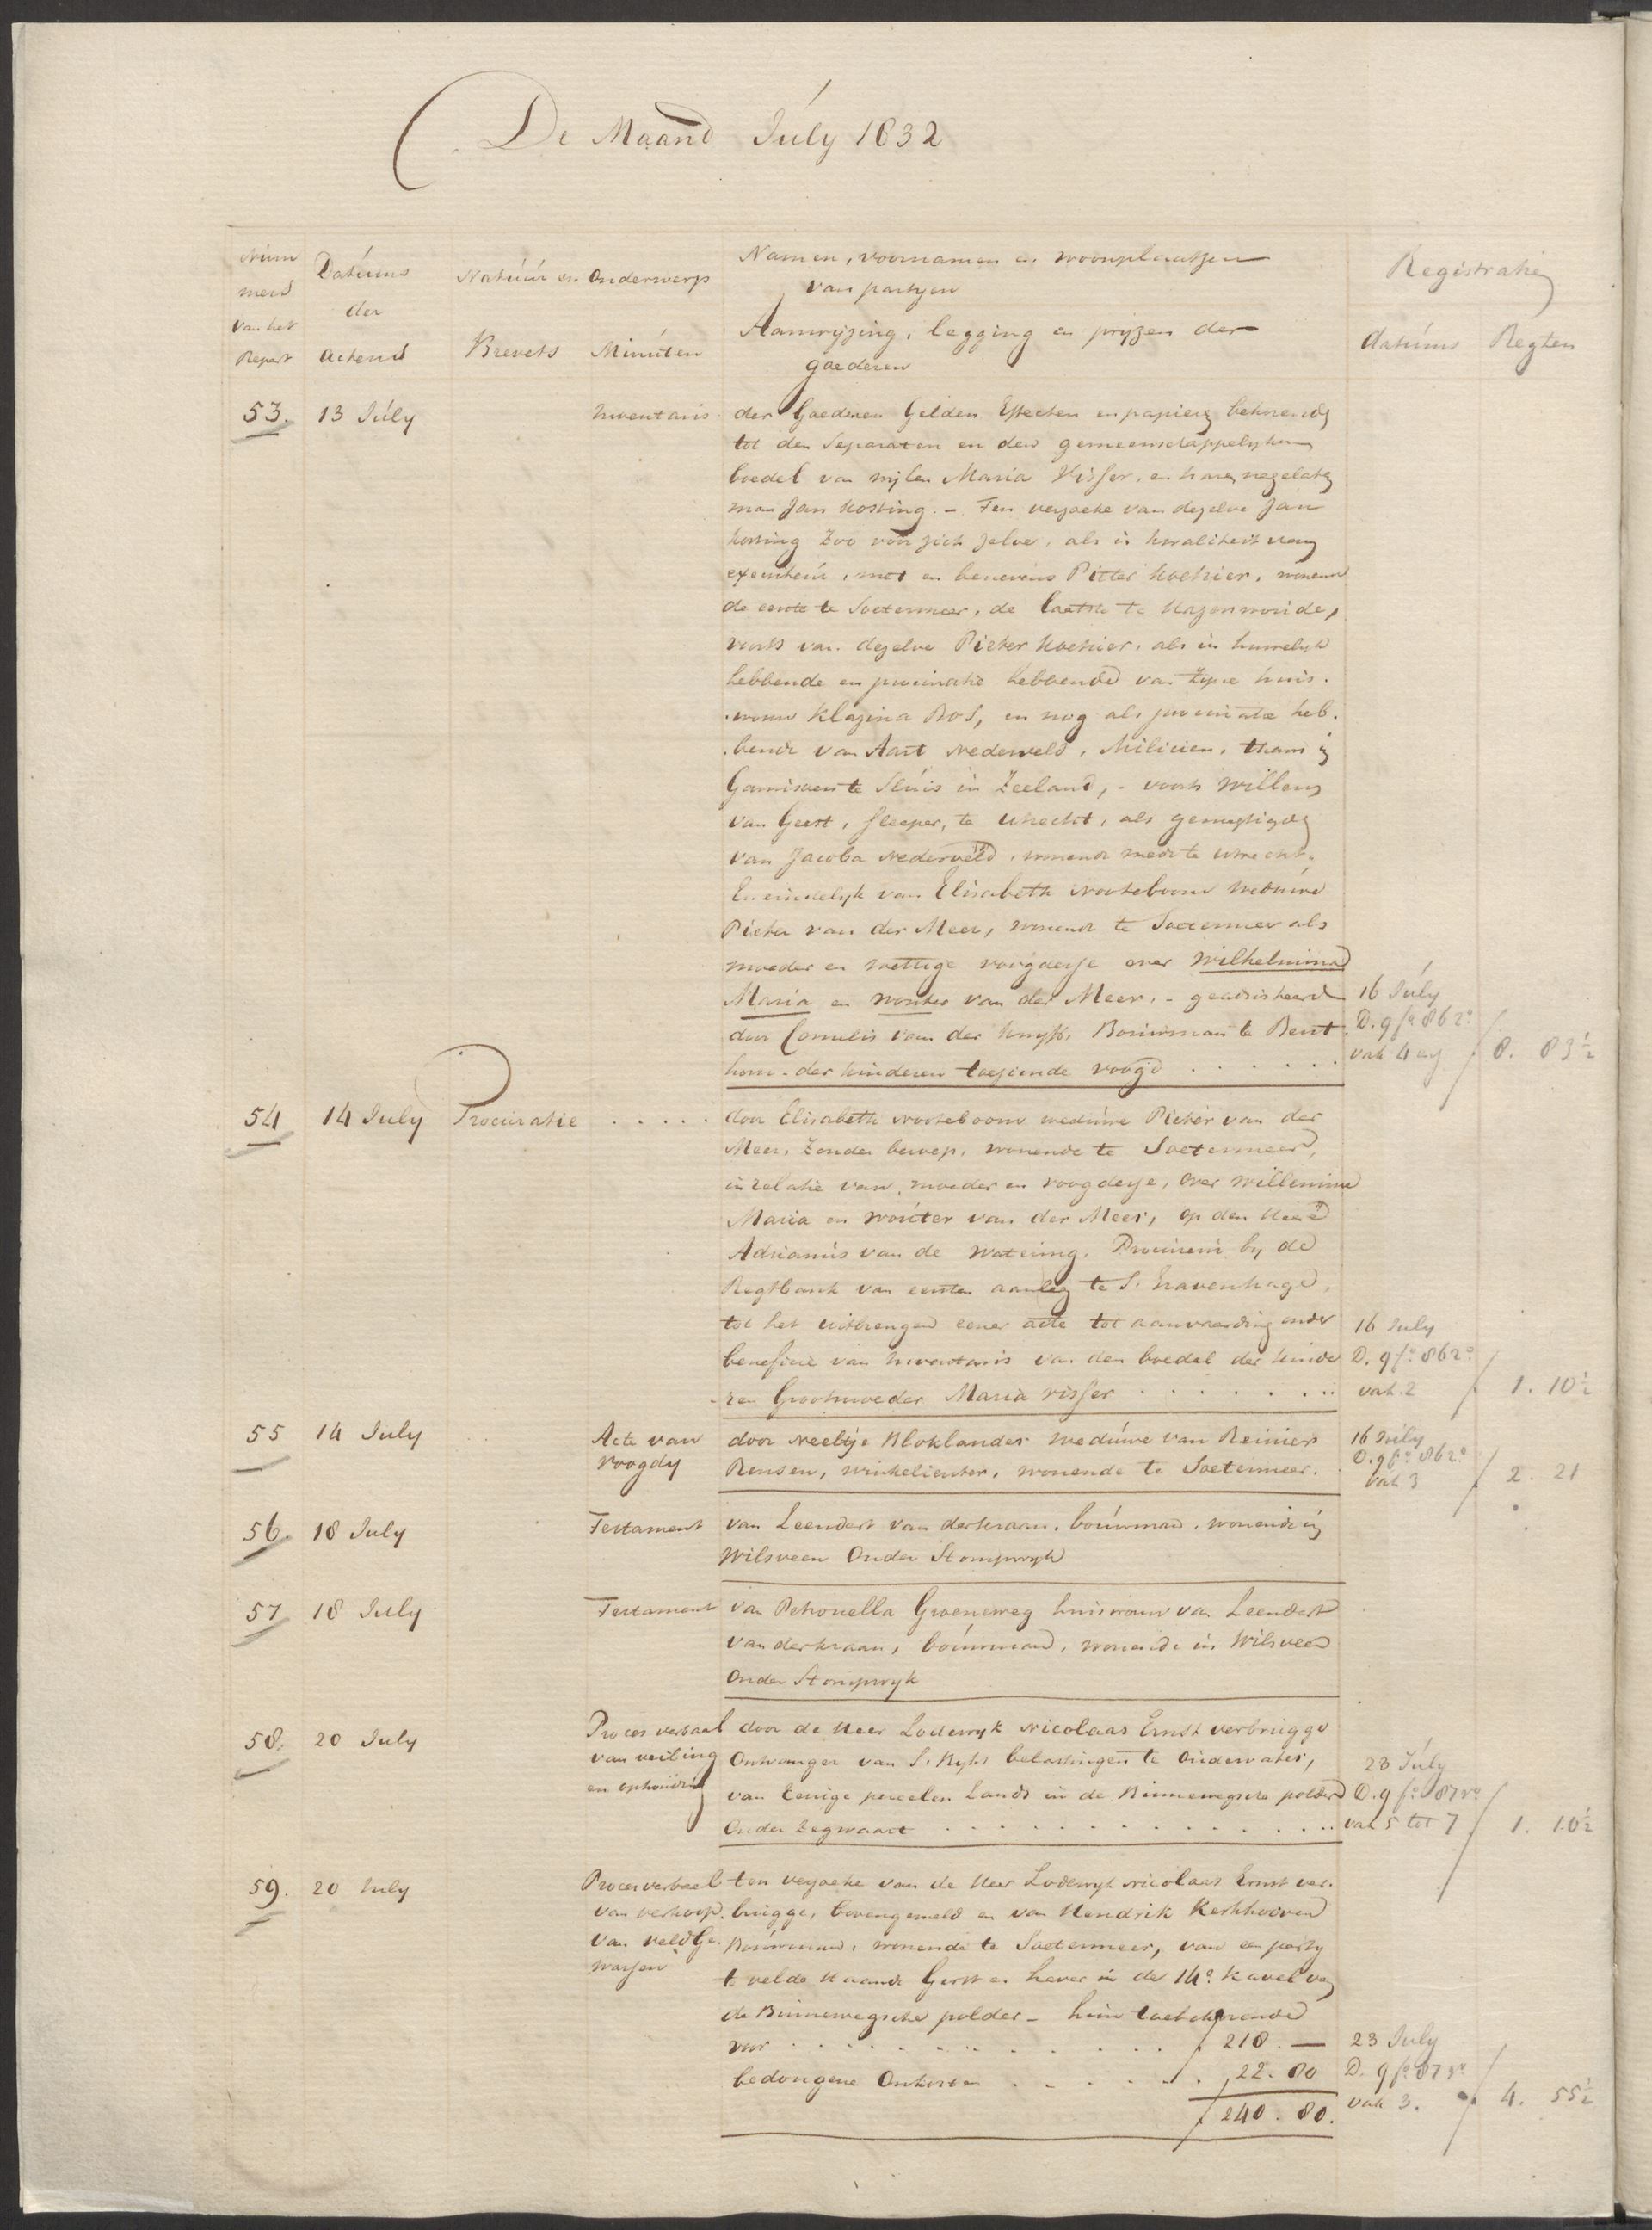 De Maand July 1832
Num
mers
van het
Repert
Datums
der
actens
Natuur en Onderwerp
Brevets Minuten
Namen, voornamen en woonplaatsen
van partyen
Aanwyzing, legging en pryzen der
goederen
Registratie
datums Regten
53. 13 July Inventaris der Goederen Gelden Effecten en papieren behorende
tot den Separaten en den gemeenschappelyken
boedel van wylen Maria Visser, en haren nagelaten
man Jan Kosting. - Ten verzoeke van dezelve Jan
Kosting Zoo voor zich zelve, als in kwaliteit van
executeur, met en benevens Pieter Koehier, wonende
de eerste te Soetermeer, de laatste te Hazerswoude,
voorts van dezelve Pieter Koehier, als in huwelyk
hebbende en procuratie hebbende van zyne huis.
.vrouw Klazina Bos, en nog als procuratie heb.
.bende van Aart Nederveld, Milicien, thans in
Garnisoen te Sluis in Zeeland, - voorts Willem
van Geest, sleeper, te Utrecht, als gemagtigde
van Jacoba Nederveld, wonende mede te Utrecht.
En eindelyk van Elisabeth Nooteboom weduwe
Pieter van der Meer, wonende te Soetermeer als
moeder en wettige voogdesse over Wilhelmina
Maria en Wouter van der Meer. - geadsisteerd
door Cornelis van der Knyff, Bouwman te Bent
horn - der kinderen toeziende voogd . . . . . .
16 July
D. 9 fo. 86 ro.
vak 4 en
8. 83½
54 14 July Procuratie . . . . . door Elisabeth Nooteboom weduwe Pieter van der
Meer, Zonder beroep, wonende te Soetermeer,
in relatie van moeder en voogdesse, over Willemina
Maria en Wouter van der Meer, op den Heer
Adrianus van de Watering, Procureur by de
Regtbank van eersten aanleg te S. Gravenhage,
tot het uitbrengen eener acte tot aanvaarding onder
beneficie van Inventaris van den boedel der kinde
ren Grootmoeder Maria Visser . . . . . . . .
16 July
D. 9 fo. 86 ro.
vak 2
1. 10½
55 14 July Acte van
voogdy
door Neeltje Bloklander weduwe van Reinier
Rensen, winkelierster, wonende te Soetermeer.
16 July
D. 9 fo. 86 ro.
vak 3
2. 21
56. 18 July Testament van Leendert van der Kraan, bouwman, wonende in
Wilsveen Onder Stompwyk
57 18 July Testament van Petronella Groeneweg huisvrouw van Leendert
van der Kraan, bouwman, wonende in Wilsveen
Onder Stompwyk
58. 20 July Proces verbaal
van veiling
en ophouding
door de Heer Lodewyk Nicolaas Ernst Verbrugge
Ontvanger van S. Ryks belastingen te Oudewater,
van Eenige perceelen Lands in de Binnewegsche polder
Onder Zegwaart . . . . . . . . . . . . . .
23 July
D. 9 fo. 87 vo
vak 5 tot 7
1. 10½
59. 20 July Proces verbaal
van verkoop.
van veldge.
wassen
ten verzoeke van de Heer Lodewyk Nicolaas Ernst ver.
brugge, bovengemeld en van Hendrik Kerkhooven
Bouwman, wonende te Soetermeer, van een party
te velde staande Gerst en haver in de 14e. kavel van
de Binnewegsche polder - hun toebehorende
voor . . . . . . . . . . . . f 218. —
bedongene Onkosten . . . . . . 22. 80
f 240. 80.
23 July
D. 9 fo. 87 vo
vak 3.
4. 55½